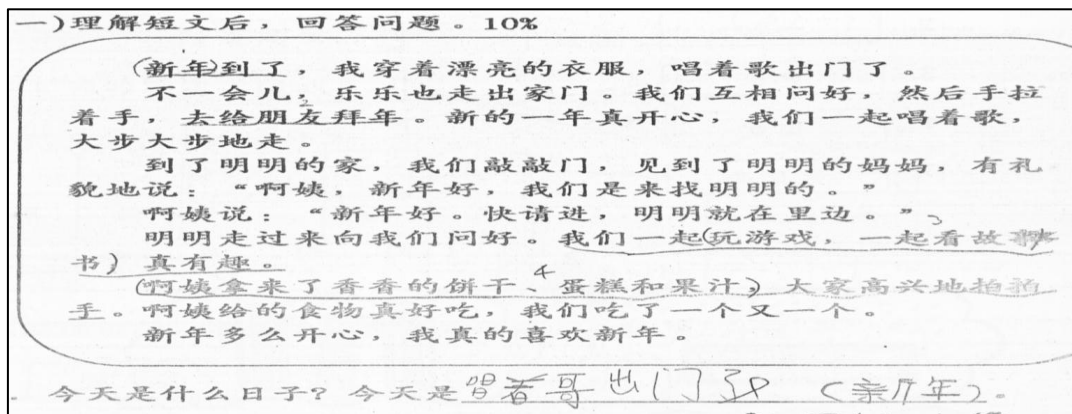 一)理解短文后，回答问题。10%
(新年)到了，我穿着漂亮的衣服，唱着歌出门了。
不一会儿，乐乐也走出家门。我们互相问好，然后手拉
着手，去给朋友拜年。新的一年真开心，我们一起唱着歌，
大步大步地走。
到了明明的家，我们敲敲门，见到了明明的妈妈，有礼
貌地说：“啊姨，新年好，我们是来找明明的。”
啊姨说：“新年好。快请进，明明就在里边。”
明明走过来向我们问好。我们一起(玩游戏，一起看故事
书) 真有趣。
4
(啊姨拿来了香香的饼干、蛋糕和果汁，) 大家高兴地拍拍
手。啊姨给的食物真好吃，我们吃了一个又一个。
新年多么开心，我真的喜欢新年。
今天是什么日子？今天是 着哥出门了 (年)。